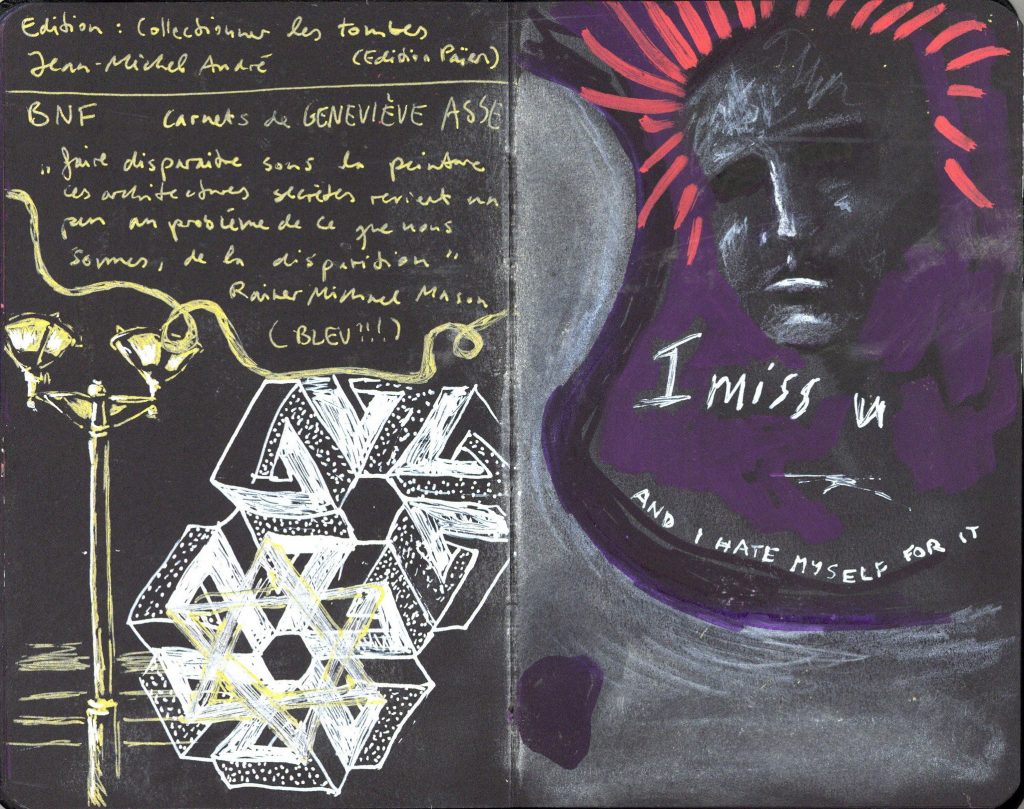 Edition : Collectionner les tombes
Jean-Michel André (Edition Païen)
BNF carnets de GENEVIÈVE ASSE
„ faire disparaitre sous la peinture
ces architectures secrètes revient un
peu au problème de ce que nous
sommes, de la disparition “
Rainer Michael Mason
(BLEU?!!)
I miss u
AND I HATE MYSELF FOR IT